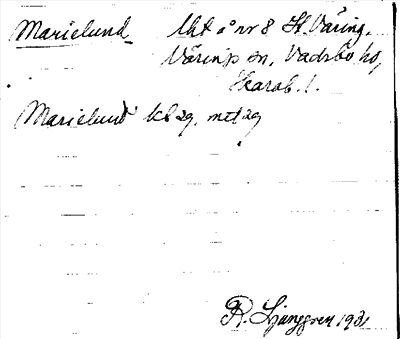 Marielund lht å nr 8 St. Väring,
Värings sn, Vadsbo hd,
Skarab. l.
Marielund kl 2g, mtl 2g
R. Ljunggren 1931